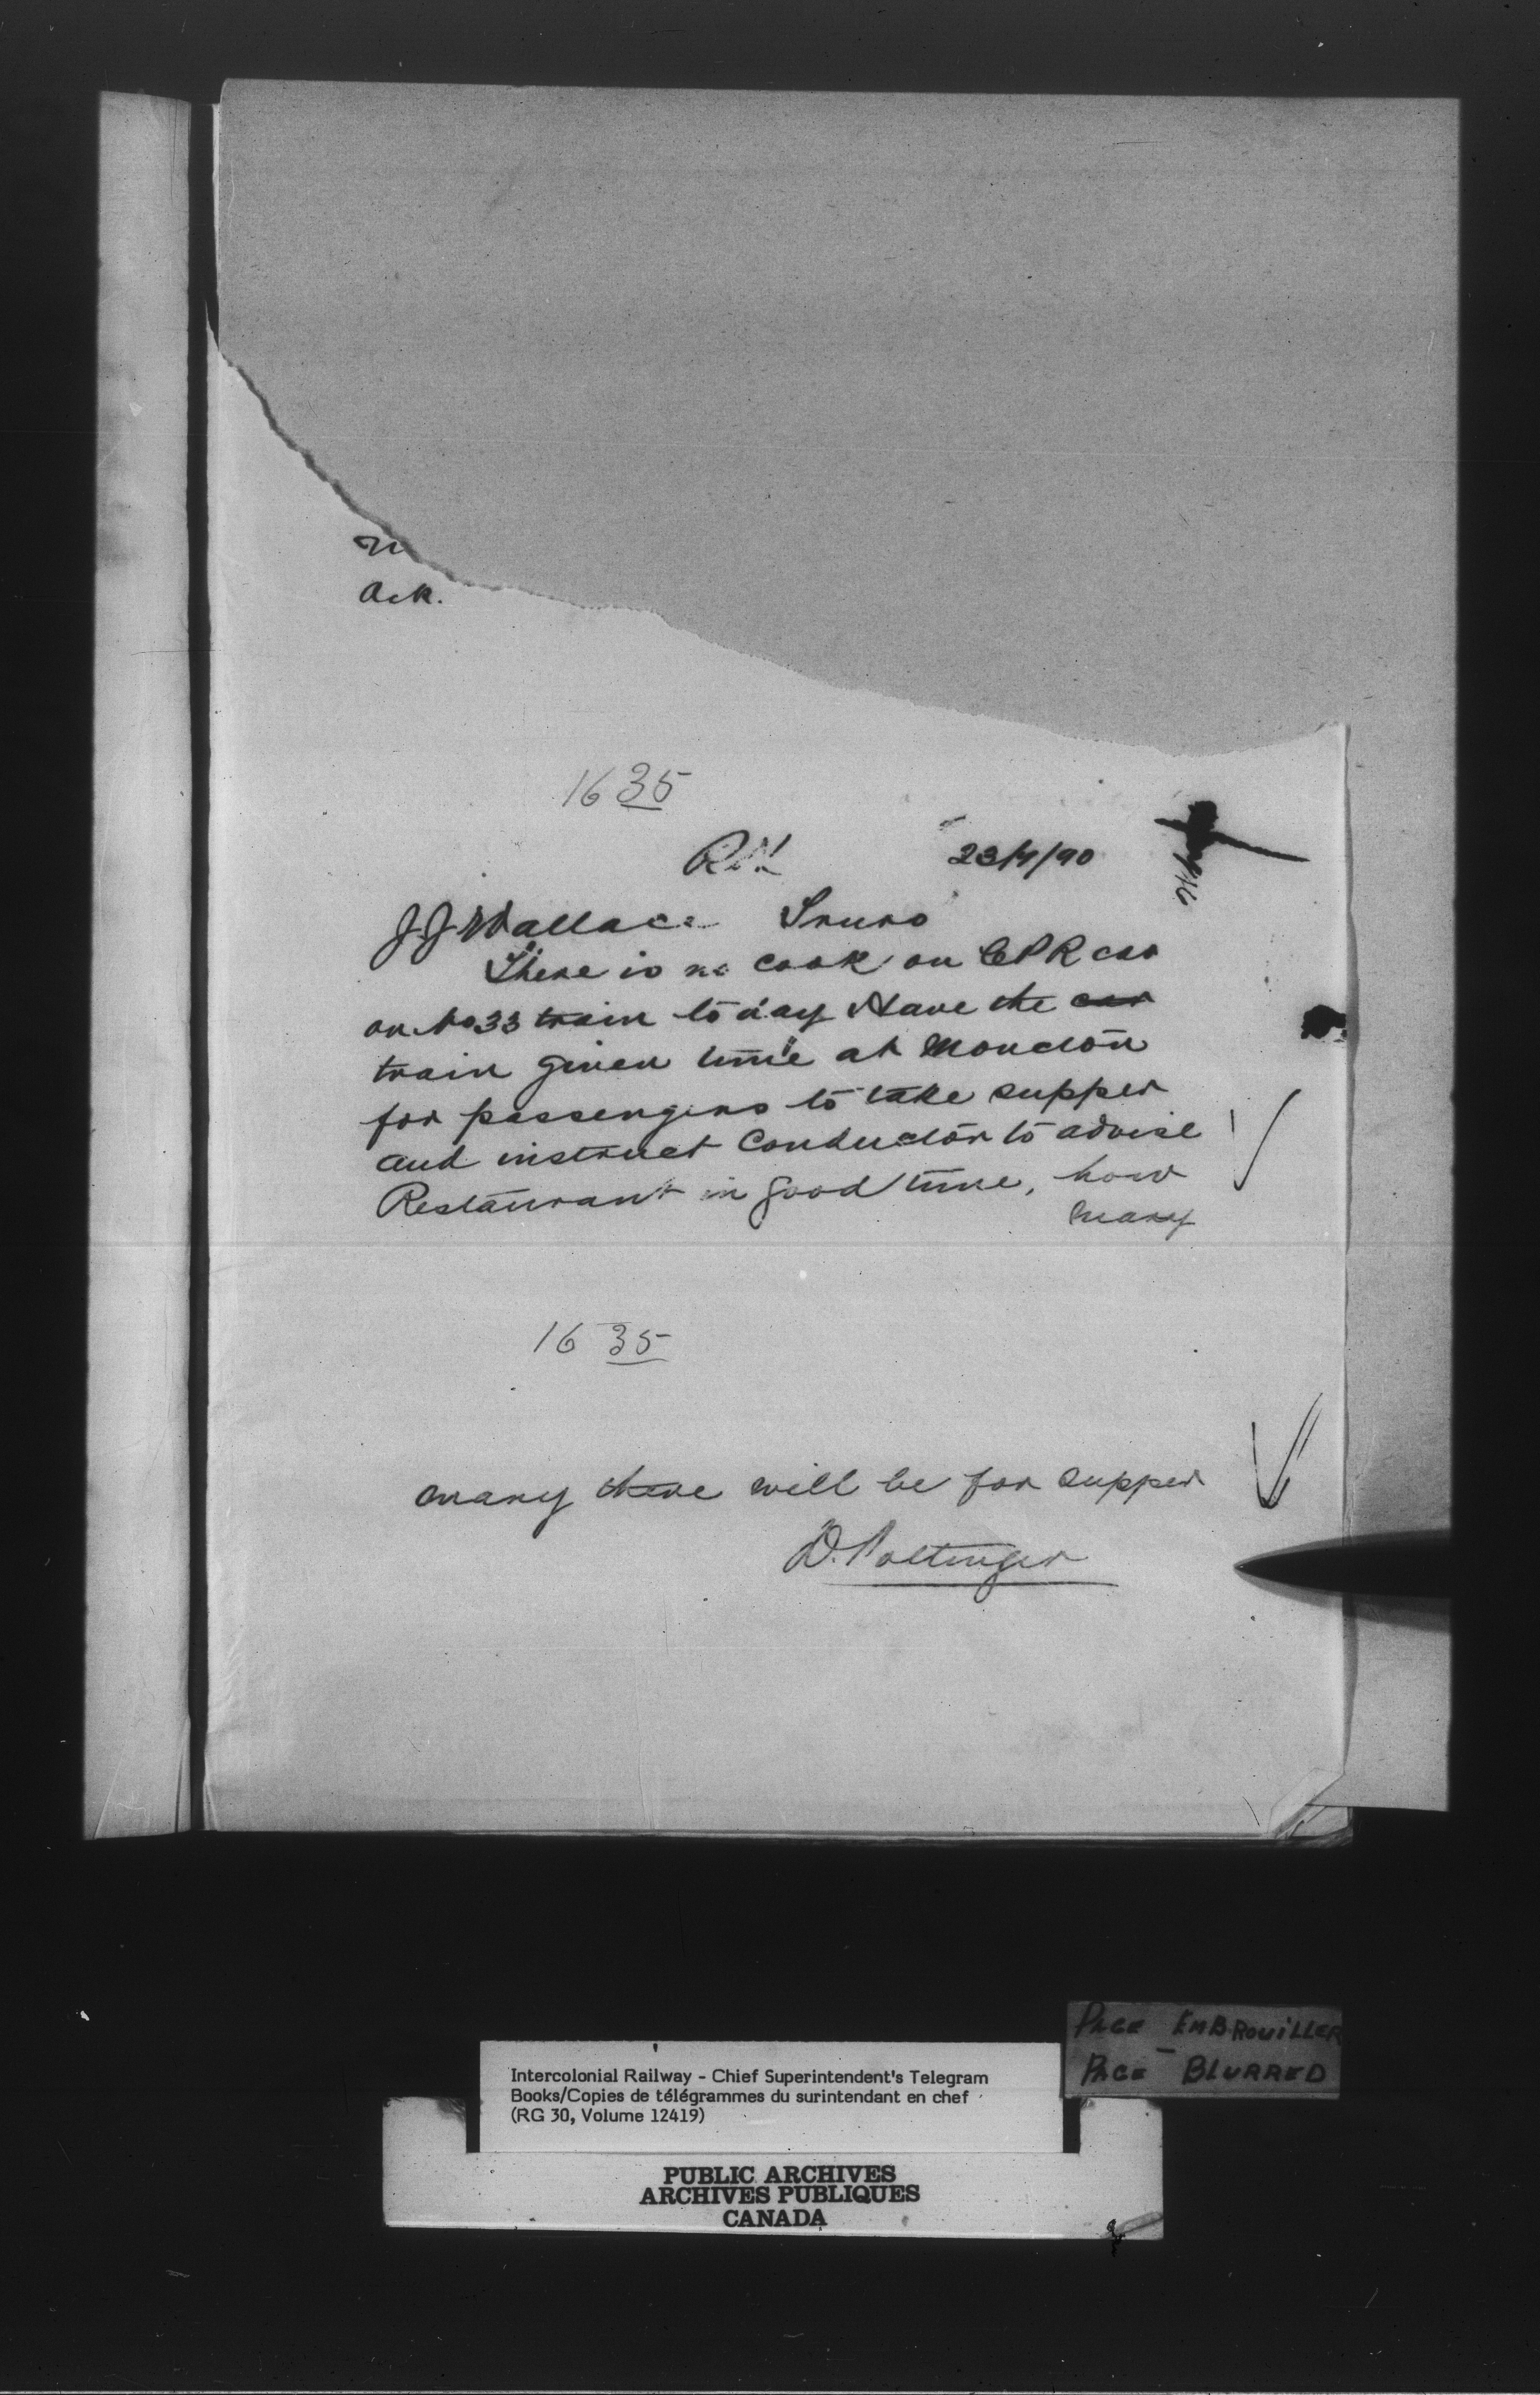 Ack.
1635
23/9/90
J.J. Wallace Truro
There is no cook on CPR car
on No 33 train today Have the car
train given time at Moncton
for passengers to take supper
and instruct Conductor to advise
Restaurant in good time, how
many
1635
many there will be for supper
D. Pottinger
PAGE EMBROUILLER
PAGE - BLURRED
Intercolonial Railway - Chief Superintendent's Telegram
Books/Copies de télégrammes du surintendant en chef
(RG 30, Volume 12419)
PUBLIC ARCHIVES
ARCHIVES PUBLIQUES
CANADA